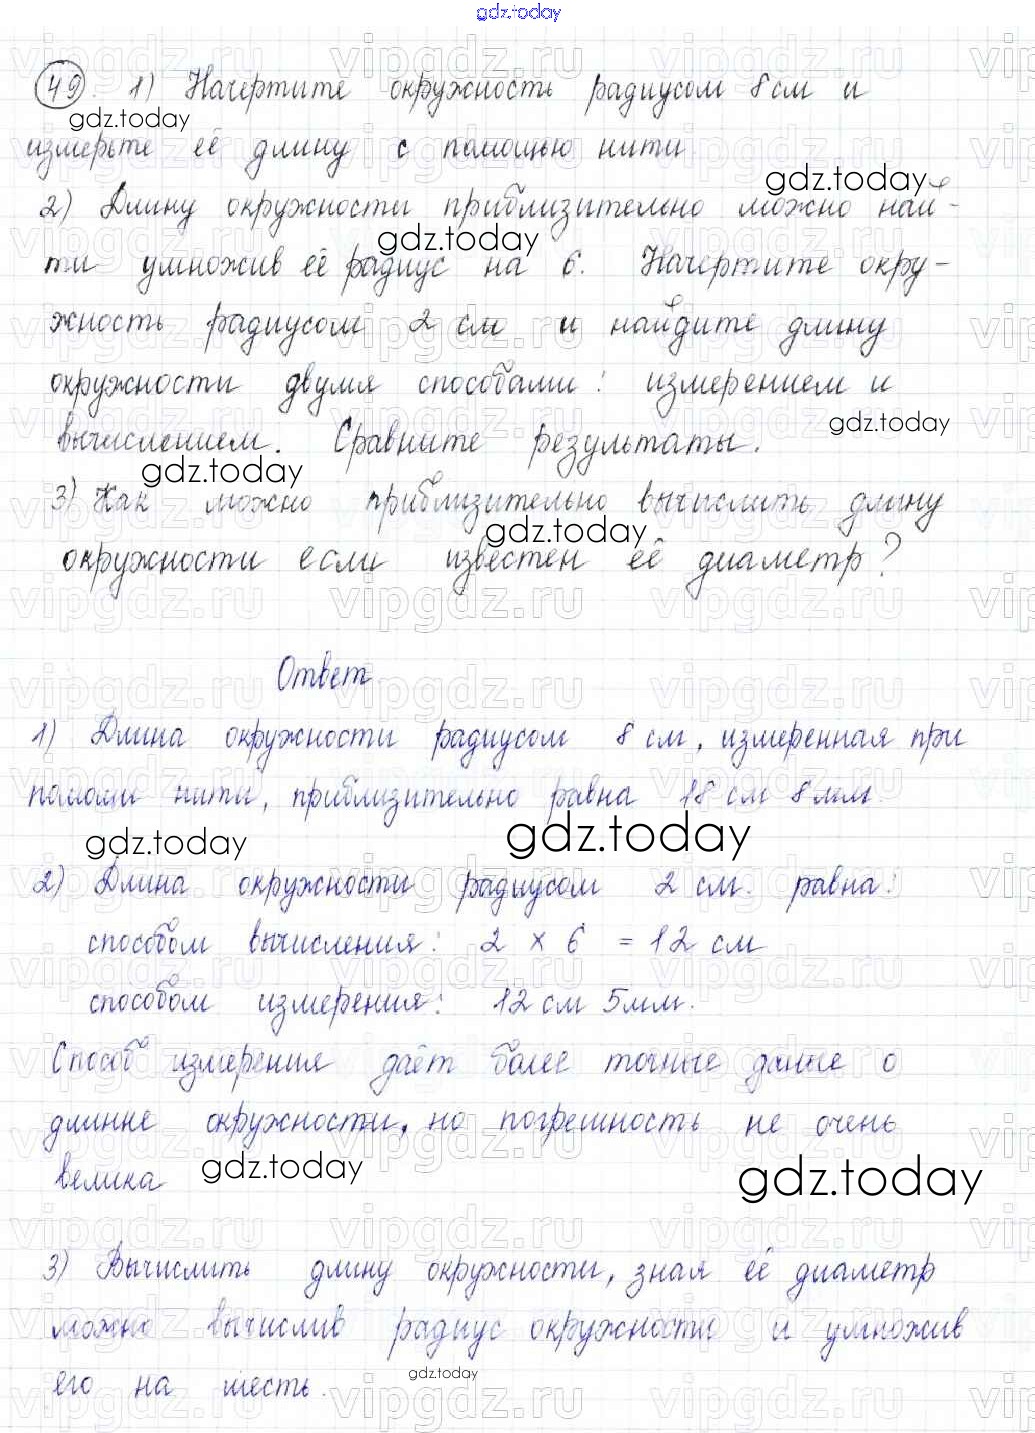 gdz.today
49. 1) Начертите окружность радиусом 8 см и
gdz.today
измерьте её длину с помощью нити
gdz.today
2) Длину окружности приблизительно можно най-
gdz.today
ти умножив её радиус на 6. Начертите окру-
жность радиусом 2 см и найдите длину
окружности двумя способами: измерением и
gdz.today
вычислением. Сравните результаты.
gdz.today
3) Как можно приблизительно вычислить длину
gdz.today
окружности если известен её диаметр?
Ответ
1) Длина окружности радиусом 8 см, измеренная при
помощи нити, приблизительно равна 18 см 8 мм.
gdz.today gdz.today
2) Длина окружности радиусом 2 см. равна:
способом вычисления: 2 × 6 = 12 см
способом измерения: 12 см 5 мм.
Способ измерения даёт более точные данные о
длинне окружности, но погрешность не очень
велика
gdz.today gdz.today
3) Вычислить длину окружности, зная её диаметр
можно вычислив радиус окружности и умножив
gdz.today
его на шесть.
vipgdz.ru